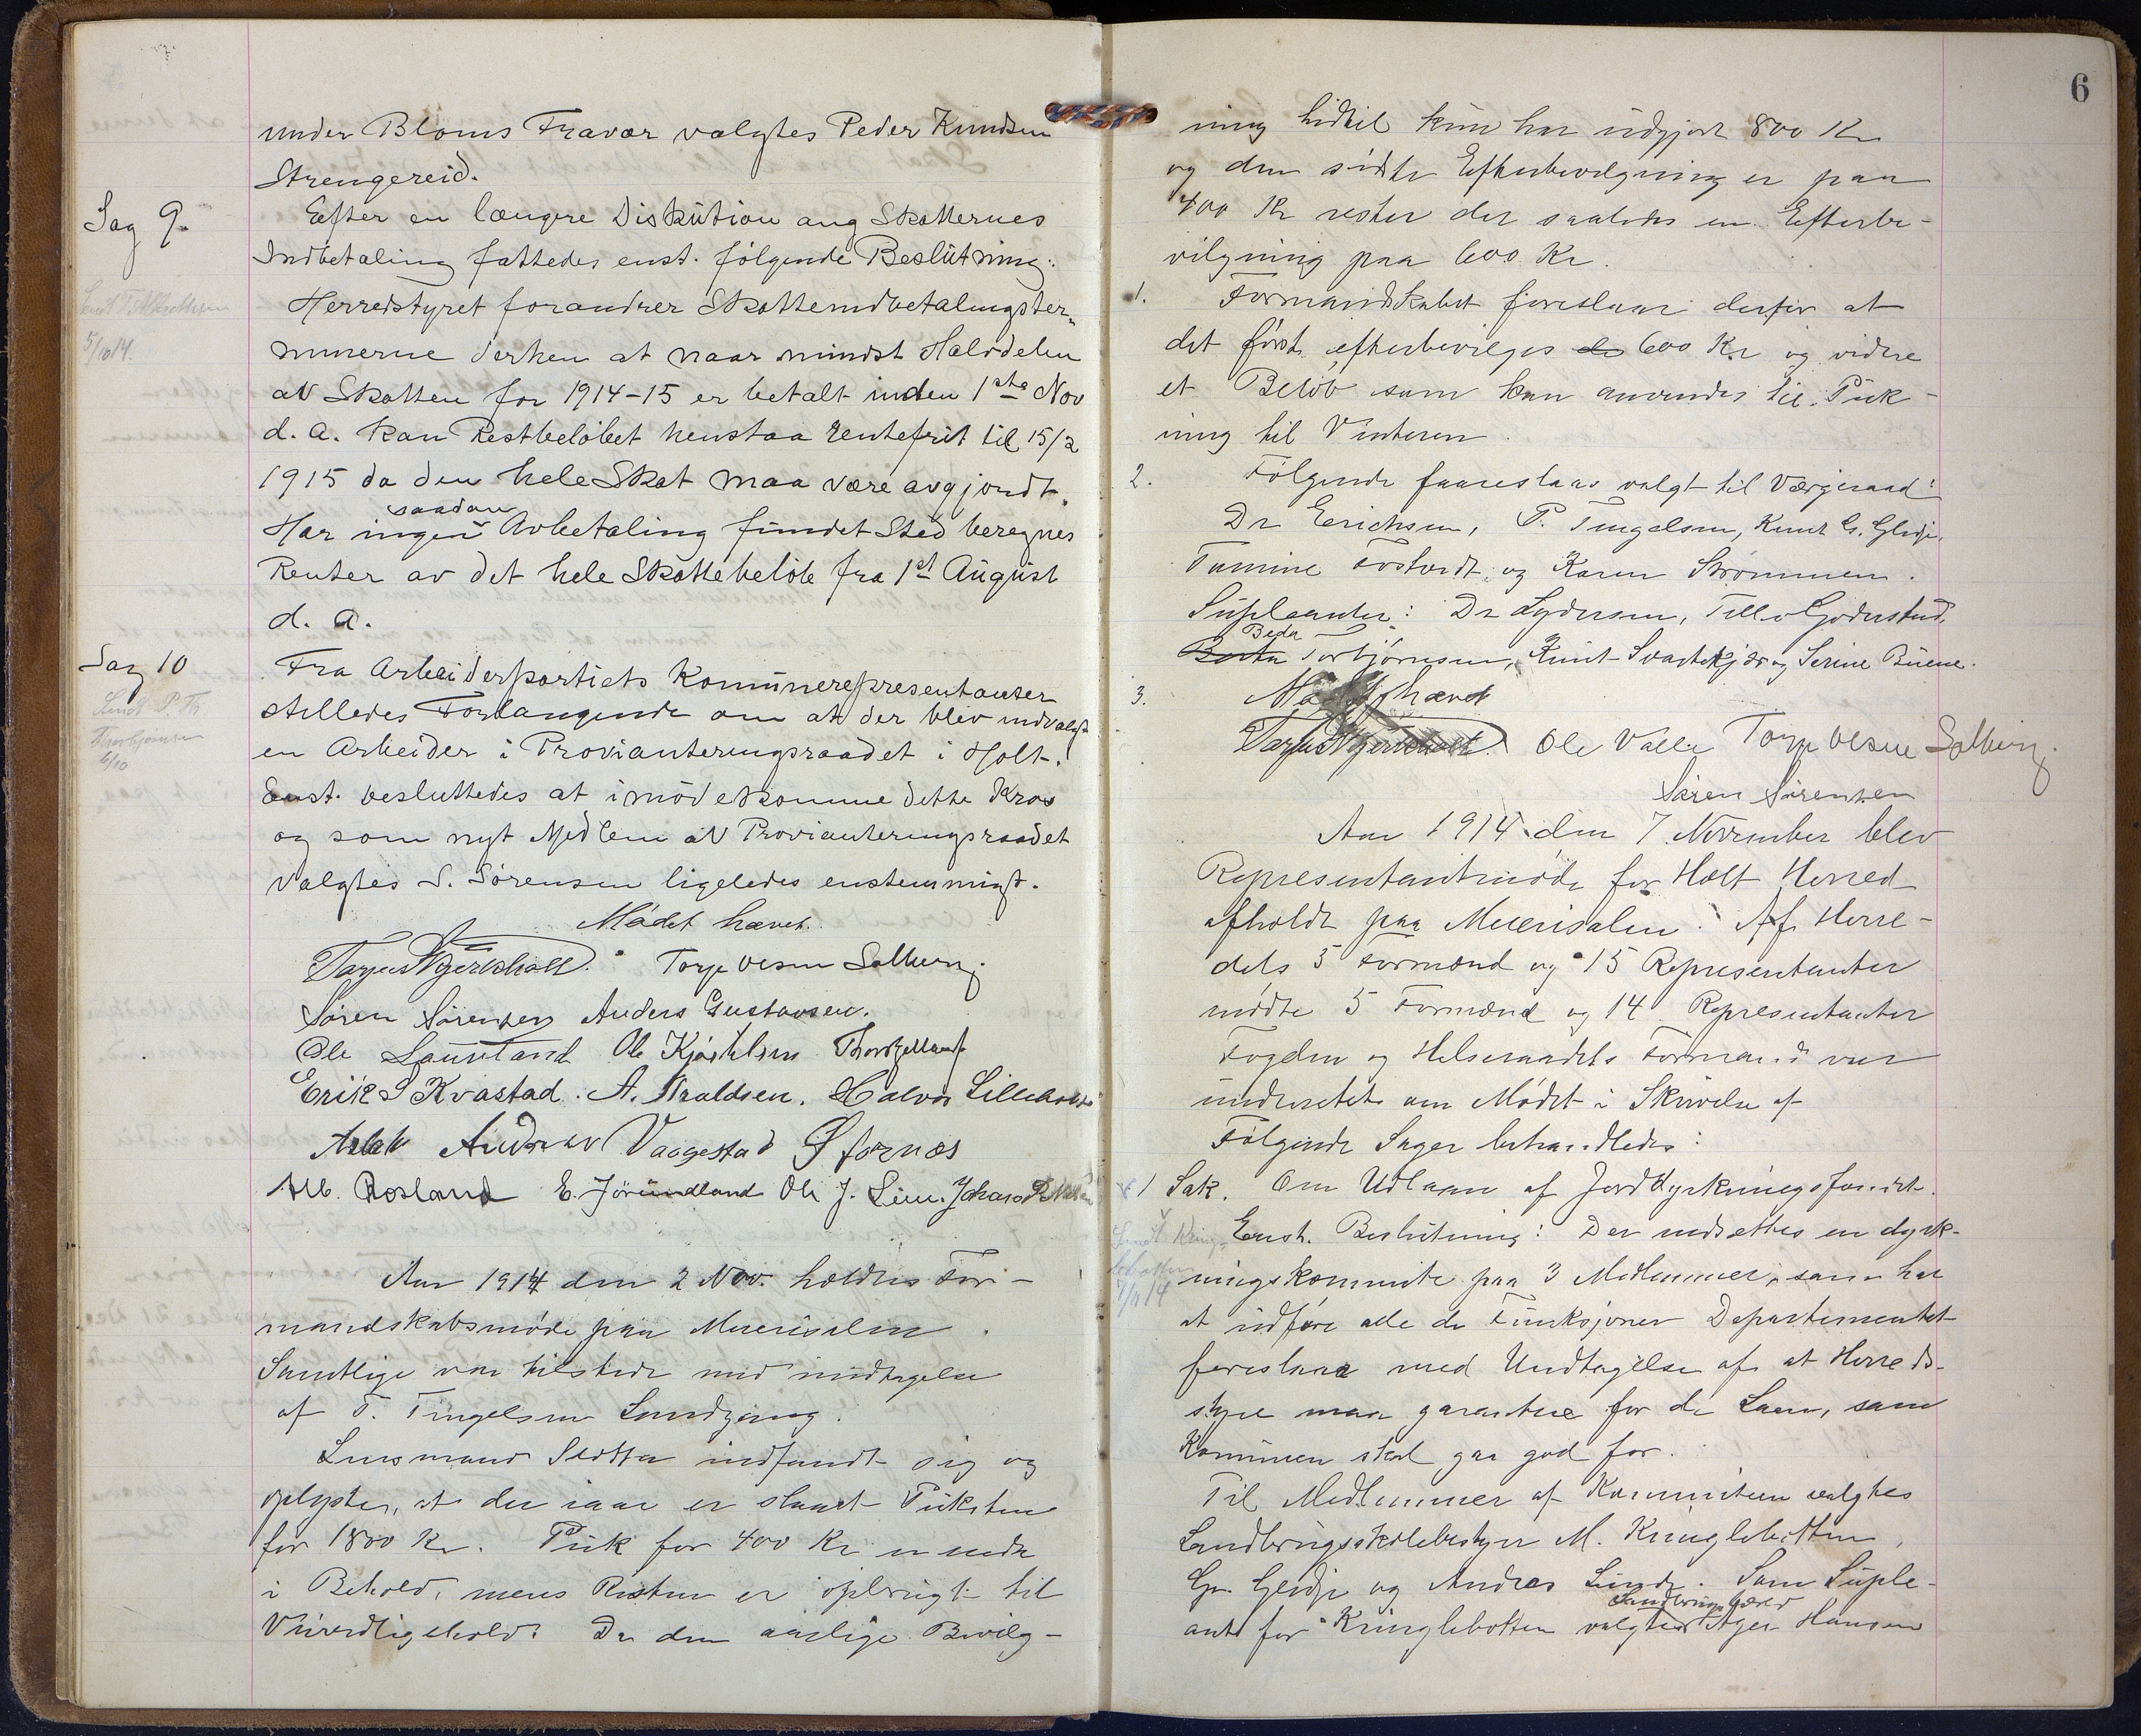 under Bloms Fravær valgtes Peder Knudsen
Strengereid.
Sag 9.
Efter en længere Diskution ang Skatternes
Indbetaling fattedes enst. følgende Beslutning:
Herredstyret forandrer Skatteindbetalingster-
5/10 14.
minerne derhen at naar mindst Halvdelen
av Skatten for 1914-15 er betalt inden 1ste Nov
d. a. kan Restbeløbet henstaa rentefrit til 15/2
1915 da den hele Skat maa være avgjordt.
saadan
Har ingen Avbetaling fundet Sted beregnes
Renter av det hele Skattebeløb fra 1st August
d. a.
Sag 10
Sendt P. Th
Thorbjørnsen
6/10
Fra Arbeiderpartiets Komunerepresentanter
stilledes Forlangende om at der blev indvalgt
en Arbeider i Provianteringsraadet i Holt.
Enst. besluttedes at imødekomme dette Krav
og som nyt Medlem av Provianteringsraadet
valgtes S. Sørensen ligeledes enstemmigt.
Mødet hævet.
Tarjus Torje Olsen Solberg
Søren Sørensen Anders Gustavsen.
Ole Lauveland Ole
Erik S Kvastad. A. Haraldsen. Halvor Lilleholt
Aslak Andreas Vaagestad
Alb. Rosland E. Jørundland Ole J. Lien. Johan
Aar 1914 den 2 Nov. holdtes For-
mandskabsmøde paa Meierisalen.
Samtlige var tilstede med undtagelse
af T. Tingelsen Sundgang.
Lensmand Slotta indfandt sig og
oplyste, at der iaar er slaaet Puksten
for 1800 Kr. Puk for 400 Kr er endnu
i Behold, mens Resten er opbrugt til
Veivedligehold. Da den aarlige Bevilg-
6
ning hidtil kun har udgjort 800 Kr
og den sidste Efterbevilgning er paa
400 Kr rester der saaledes en Efterbe-
vilgning paa 600 Kr.
1.
Formandskabet foreslaar derfor at
det først efterbevilges 600 Kr og videre
et Beløb som kan anvendes til Puk-
ning til Vinteren.
2.
Følgende foareslaas valgt til Værgeraad:
Dr Erichsen, P. Tingelsen, Knut G. Glidje,
Tomine Fosterdt, og Karen Strømmen.
Supleanter: Dr Lydersen, Tellef Goderstad,
Beda
Berta Torbjørnsen, Knut Svartekjær og Serine Buene.
3.
Mødet hævet
Tarjus Ole Valle Torje Olsen Solberg.
Søren Sørensen
Aar 1914 den 7 November blev
Representantmøde for Holt Herred
afholdt paa Meierisalen. Af Herre-
dets 5 Formænd og 15 Representanter
mødte 5 Formænd og 14 Representanter
Fogden og Helseraadets Formand var
underrettet om Mødet i Skrivelse af
Følgende Sager behandledes:
1 Sak. Om Udlaan af Jorddyrkningsfondet.
Enst. Beslutning: Der nedsættes en dyrk-
ningskommite paa 3 Medlemmer, som har
at udføre alle de Funksjoner Departementet
foreslaar med Undtagelse af at Herreds-
styre maa garantere for de Laan, som
Komunen skal gaa god for.
Til Medlemmer af Kommiteen valgtes
Landbrugsskolebestyrer M. Kringlebotten,
Gr. Glidje og Andreas Lunde. Som Suple-
Landbrugslærer
ant for Kringlebotten valgtes Hansen